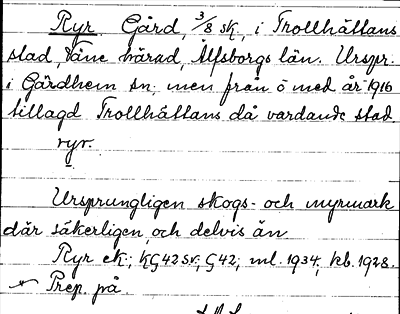 Ryr Gård, 3/8 sk, i Trollhättans
stad, Väne härad, Älfsborgs län. Urspr.
i Gärdhem sn. men från o med år 1916
tillagd Trollhättans då vardande stad.
ryr.
Ursprungligen skogs- och myrmark
där säkerligen, och delvis än
Ryr ek.; KG42 sv.; G42; ml. 1934; kb. 1928.
Prep. på